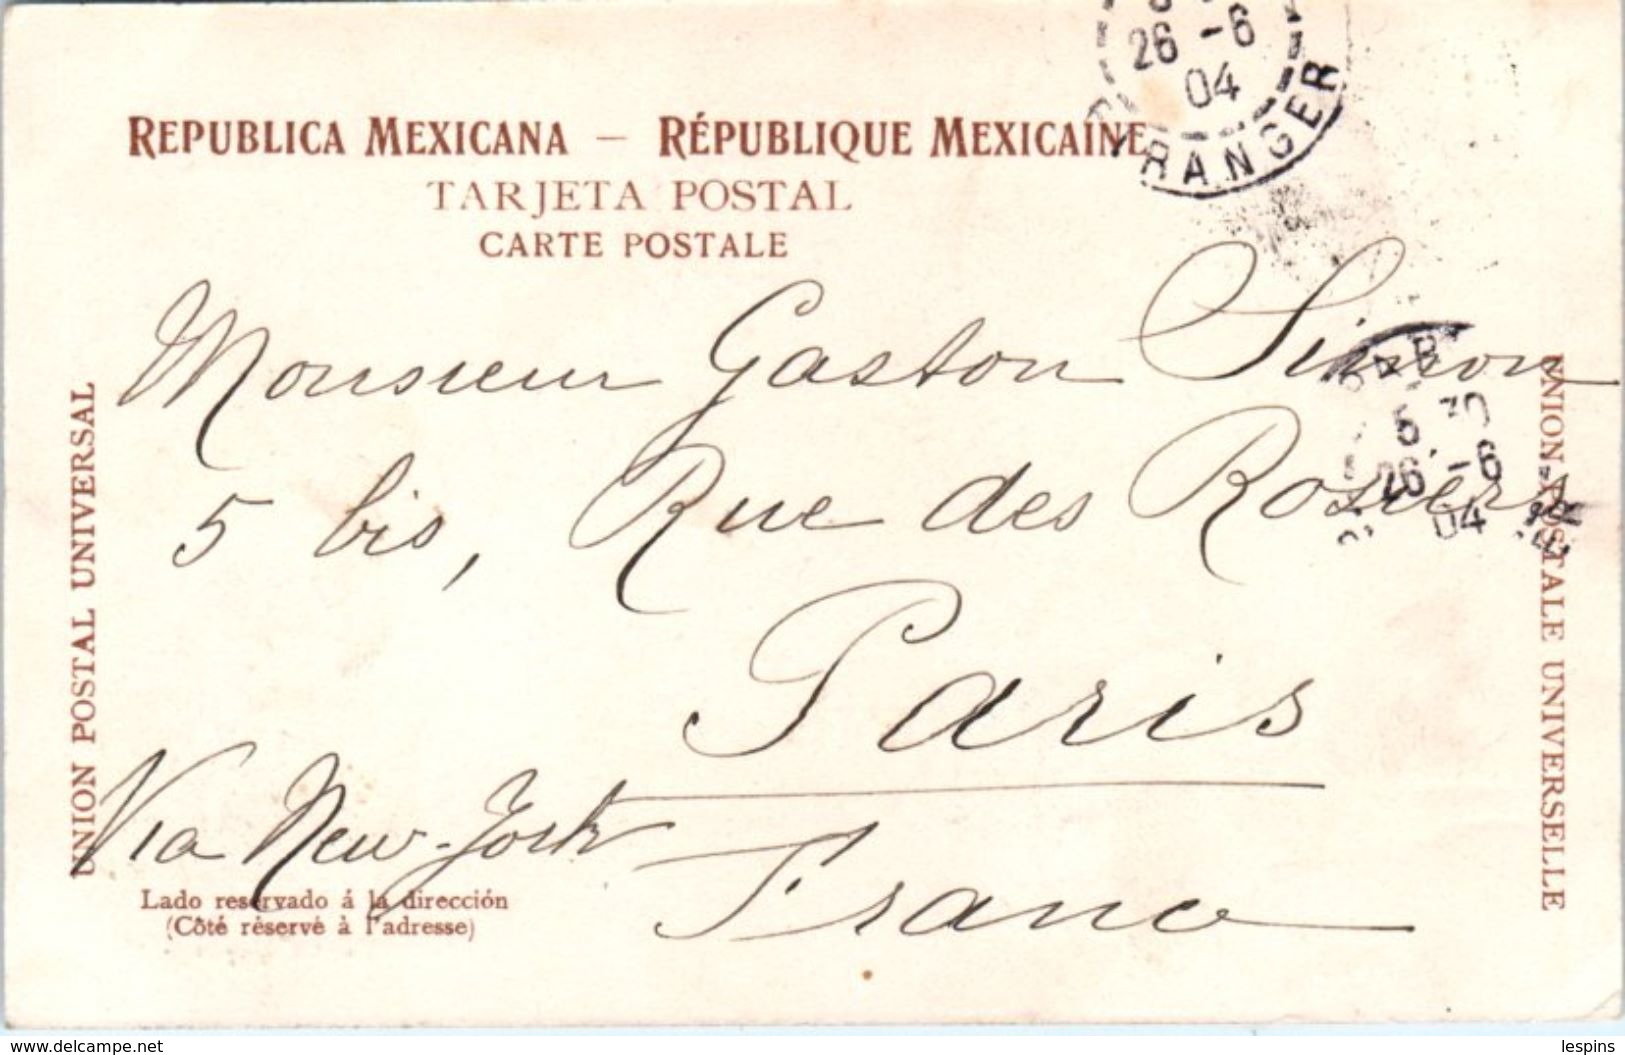 26 -6
04
RANGER
REPUBLICA MEXICANA — RÉPUBLIQUE MEXICAINE
TARJETA POSTAL
CARTE POSTALE
Monsieur Gaston Simon
5 30
26 -6
04
5 bis, Rue des Rosiers
Paris
Via New-York
France
UNION POSTAL UNIVERSAL
UNION POSTALE UNIVERSELLE
Lado reservado á la dirección
(Côté réservé à l'adresse)
www.delcampe.net
lespins